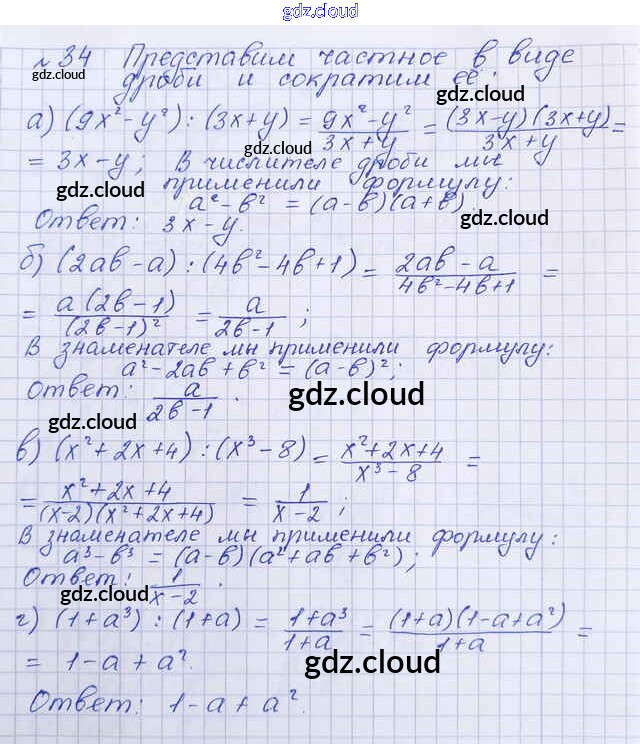 gdz.cloud
№34 Представим частное в виде
gdz.cloud дроби и сократим её.
gdz.cloud
а) (9x²-y²) : (3x+y) = \frac{9x²-y²}{3x+y} = \frac{(3x-y)(3x+y)}{3x+y} =
gdz.cloud
= 3x-y; В числителе дроби мы
gdz.cloud применили формулу: gdz.cloud
a²-b² = (a-b)(a+b)
Ответ: 3x-y. gdz.cloud
б) (2ab-a) : (4b²-4b+1) = \frac{2ab-a}{4b²-4b+1} =
= \frac{a(2b-1)}{(2b-1)²} = \frac{a}{2b-1};
В знаменателе мы применили формулу:
a²-2ab+b² = (a-b)²;
Ответ: \frac{a}{2b-1}. gdz.cloud
gdz.cloud
в) (x²+2x+4) : (x³-8) = \frac{x²+2x+4}{x³-8} =
= \frac{x²+2x+4}{(x-2)(x²+2x+4)} = \frac{1}{x-2};
В знаменателе мы применили формулу:
a³-b³ = (a-b)(a²+ab+b²);
Ответ: \frac{1}{x-2}. gdz.cloud
gdz.cloud
г) (1+a³) : (1+a) = \frac{1+a³}{1+a} = \frac{(1+a)(1-a+a²)}{1+a} =
= 1-a+a². gdz.cloud
Ответ: 1-a+a².